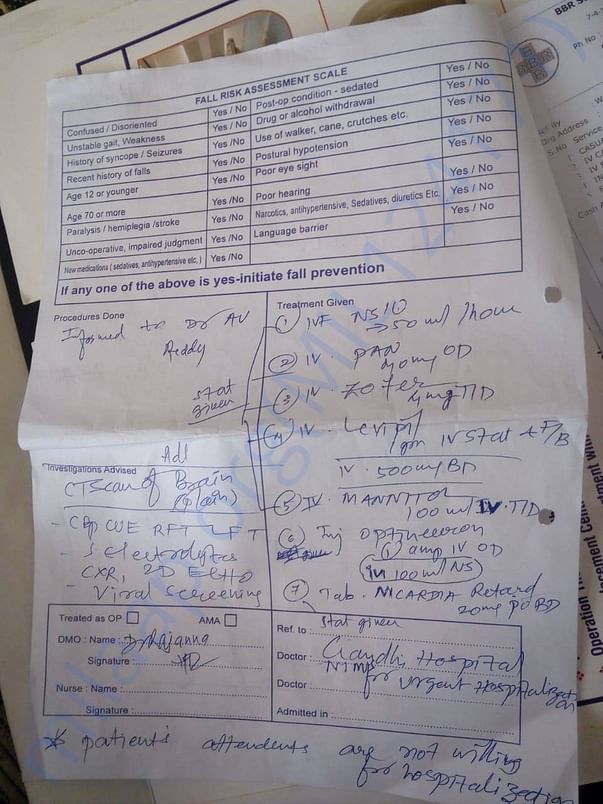 FALL RISK ASSESSMENT SCALE
Confused / Disoriented Yes / No Post-op condition - sedated Yes / No
Unstable gait, Weakness Yes / No Drug or alcohol withdrawal Yes / No
History of syncope / Seizures Yes /No Use of walker, cane, crutches etc. Yes / No
Recent history of falls Yes /No Postural hypotension Yes / No
Age 12 or younger Yes /No Poor eye sight Yes / No
Age 70 or more Yes /No Poor hearing Yes / No
Paralysis / hemiplegia /stroke Yes /No Narcotics, antihypertensive, Sedatives, diuretics Etc. Yes / No
Unco-operative, impaired judgment Yes /No Language barrier Yes / No
New medications ( sedatives, antihypertensive etc,) Yes /No
If any one of the above is yes-initiate fall prevention
Procedures Done
Informed to Dr AV
Reddy
stat
given
Treatment Given
① IVF NS
→ 50 ml / hour
② IV. PAN
40mg OD
③ IV. ZOFER
4mg TID
④ IV. Levipil
1gm IV Stat + F/B
IV. 500mg BD
⑤ IV. MANNITOL
100 ml IV. TID
⑥ Inj Optineuron
① amp IV OD
in 100ml NS
⑦ Tab. NICARDIA Retard
20mg PO BD
stat given
Adv
Investigations Advised
CT Scan of Brain
(Plain)
- CBP CUE RFT LFT
- S Electrolytes
CXR, 2D ECHO
- Viral Screening
Treated as OP AMA
DMO : Name : Dr Rajanna
Signature :
Nurse : Name :
Signature :
Ref. to :
Doctor : Gandhi Hospital
NIMS
Doctor : for urgent Hospitalization
Admitted in :
* patient's attendents are not willing
for hospitalization
BBR
7-4-
Ph No
Ref By
Address
S.No Service
CASUA
IV C
IV F
Cash
Operation The